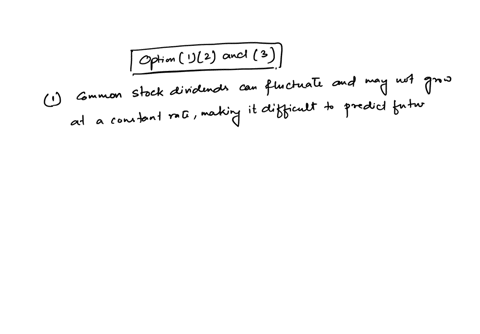 Option (1)(2) and (3)
(1) Common stock dividends can fluctuate and may not grow
at a constant rate, making it difficult to predict futur